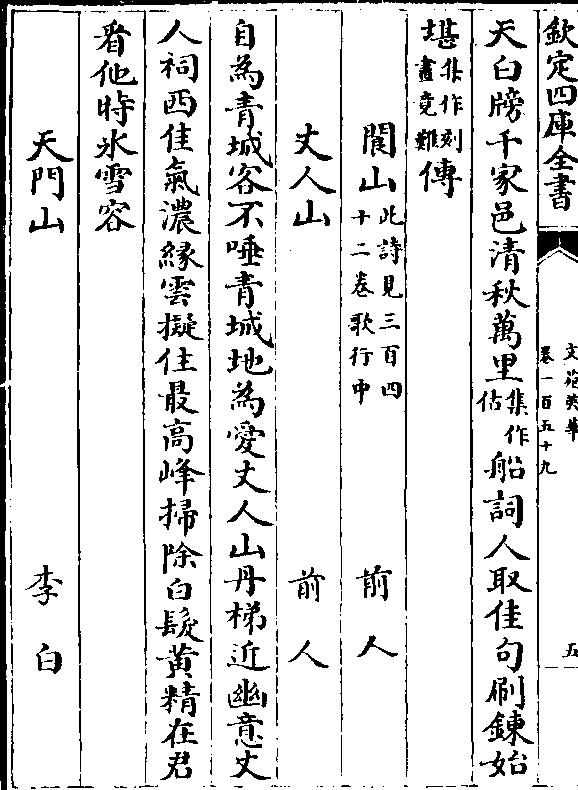 欽定四庫全書
文苑英華
卷一百五十九
五
天白牓千家邑清秋萬里集作估船詞人取佳句刷鍊始
堪集作刻畫竟難傳
閬山此詩見三百四十二卷歌行中 前人
丈人山 前人
自為青城客不唾青城地為愛丈人山丹梯近幽意丈
人祠西佳氣濃緣雲擬住最高峰掃除白髮黃精在君
看他時氷雪容
天門山 李白